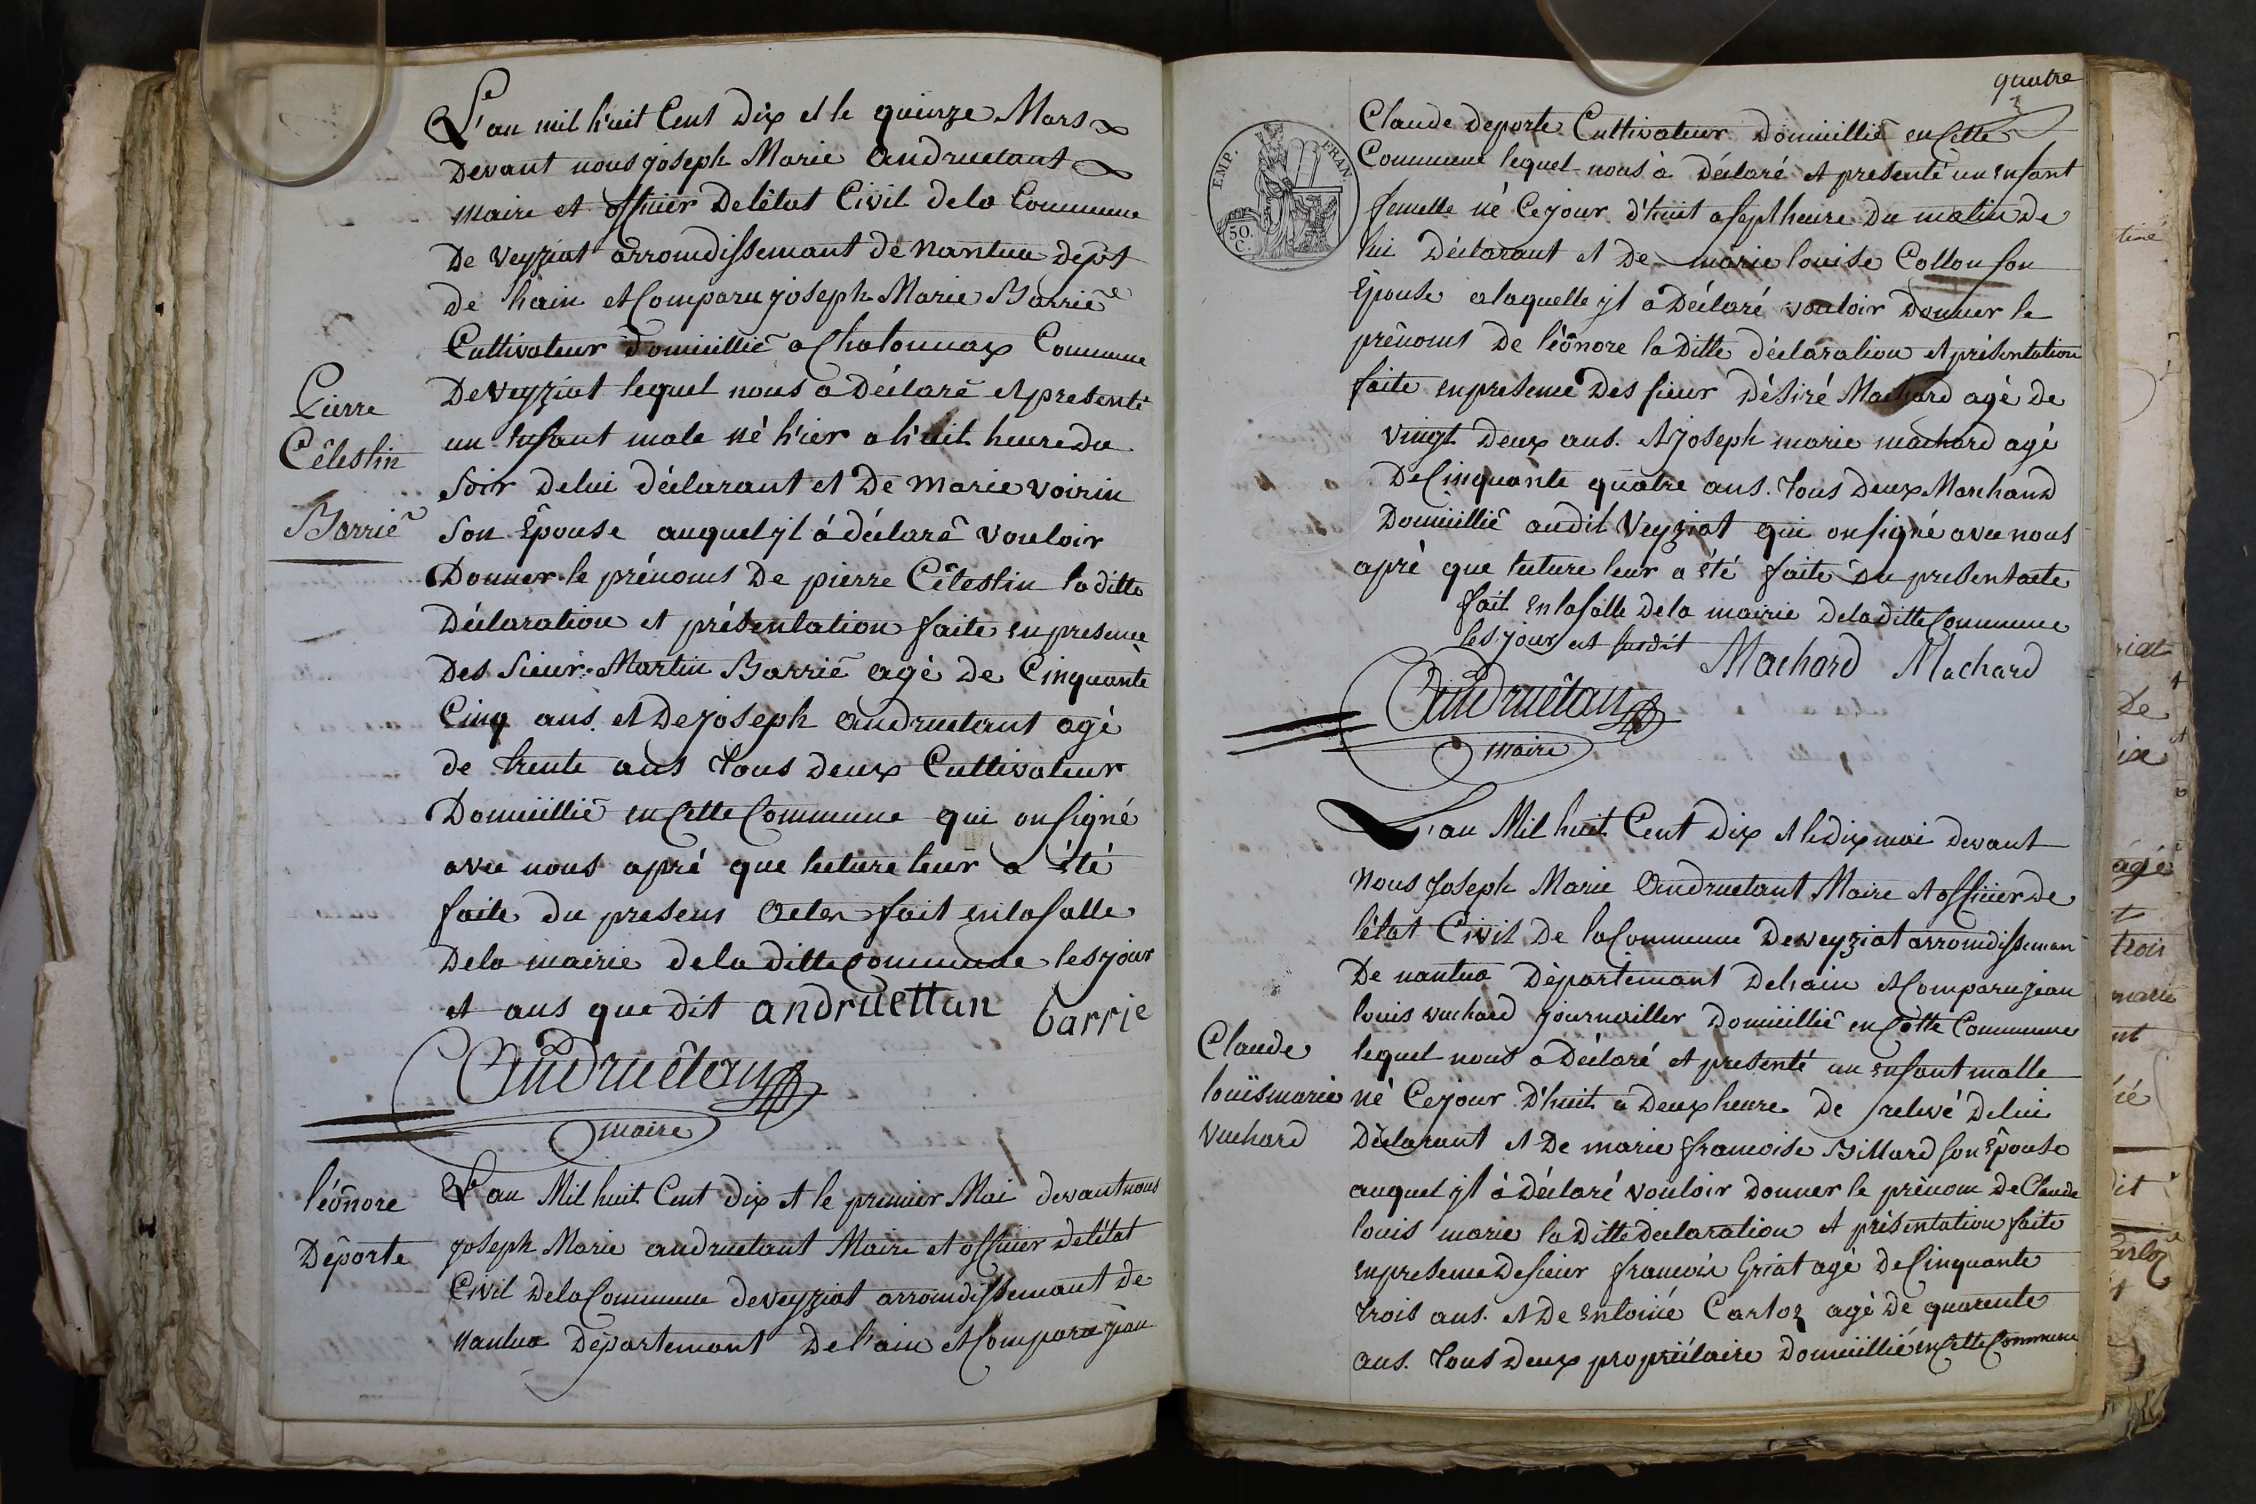 L'an mil huit Cent Dix et le quinze Mars
Devant nous joseph Marie andruetant
maire et officier Delêtat Civil dela Commune
De Veyziat arromdissemant de Nantua depot
de lhain et Comparu joseph Marie Barriê
Cultivateur domicillié a Chatonnax Commune
De Veyziat lequel nous a Déclaré et presenté
Pierre
Cêlestin
Barriê
un enfant male né h'ier a h'uit heure du
Soir delui déclarant et De Marie Voirin
Son Epouse auquel jl á déclaré vouloir
Donner le prénoms De pierre Cêlestin la ditte
Déclaration et présentation faite en presence
Des Sieur Martin Barriê agé de Cinquante
Cinq ans. et De joseph andruetant agé
de trente ans tous deux Cultivateur
Domicillié en Cette Commune qui on signé
avec nous apré que lecture leur a été
faite du presens acte fait en la salle
Dela mairie dela ditte Commune les jour
et ans que dit andruettan barrie
Andruêtan
maire
léônore
Dêporte
L'an Mil huit Cent dix et le premier Mai devant nous
joseph Marie andruetant Maire et officier delétat
Civil Dela Commune de Veyziat arromdissemant de
nantua Département De l'ain et Comparu jean
quatre
EMP. FRAN.
50.
C.
Claude deporte Cultivateur Domicillié en Cette
Commune lequel nous à Déclaré et presenté un enfant
femelle né Cejour d'huit a sept heure Du matin de
lui Déclarant et De marie louise Collon son
Epouse alaquelle jl à Déclaré vouloir Donner le
prênoms De léônore la Ditte déclaration et présentation
faite en presence Des sieur Désiré Machard agé de
vingt deux ans. et joseph marie machard agé
De Cinquante quatre ans. tous Deux Marchand
Domicillié audit Veyziat qui on signé avec nous
apré que lecture leur a été faite Du present acte
fait en la salle Dela mairie dela ditte Commune
les jour et susdit Machard Machard
Andruêtan
maire
L'an Mil huit Cent Dix et le dix mai devant
Nous Joseph Marie Andruetant Maire et officier de
létat Civil De la Commune De Veyziat arromdisseman
De nantua Département Delain et Comparu jean
louis vuchard journailler Domicillié en Cette Commune
Claude
louis marie
Vuchard
lequel nous a Déclaré et presenté un enfant malle
né Cejour D'huit à Deux heure De relevé Delui
Déclarant et De marie francoise Billard son Epouse
auquel jl à Déclaré vouloir Donner le prénom De Claude
louis marie la Ditte declaration et présentation faite
en presence De sieur francois Griat agé De Cinquante
trois ans. et De entoine Carloz agé de quarente
ans. tous deux propriétaire Domicillié en Cette Commune